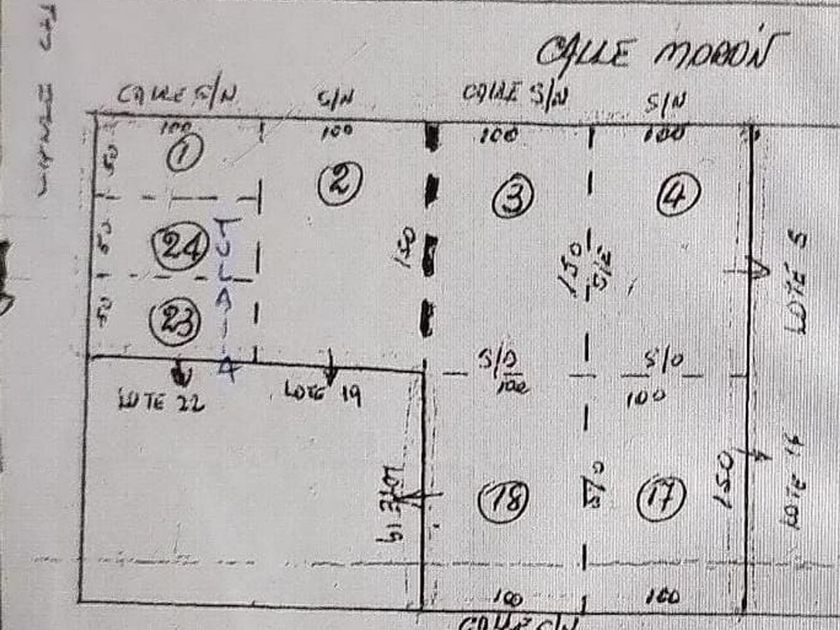 CALLE MORÓN
CALLE S/N
S/N
CALLE S/N
S/N
100
100
100
100
50
1
2
3
4
50
24
TULALIA
150
150
S/E
LOTE 5
50
23
S/O
100
S/O
100
LOTE 22
LOTE 19
LOTE 19
18
S/O
17
150
100
100
CALLE S/N